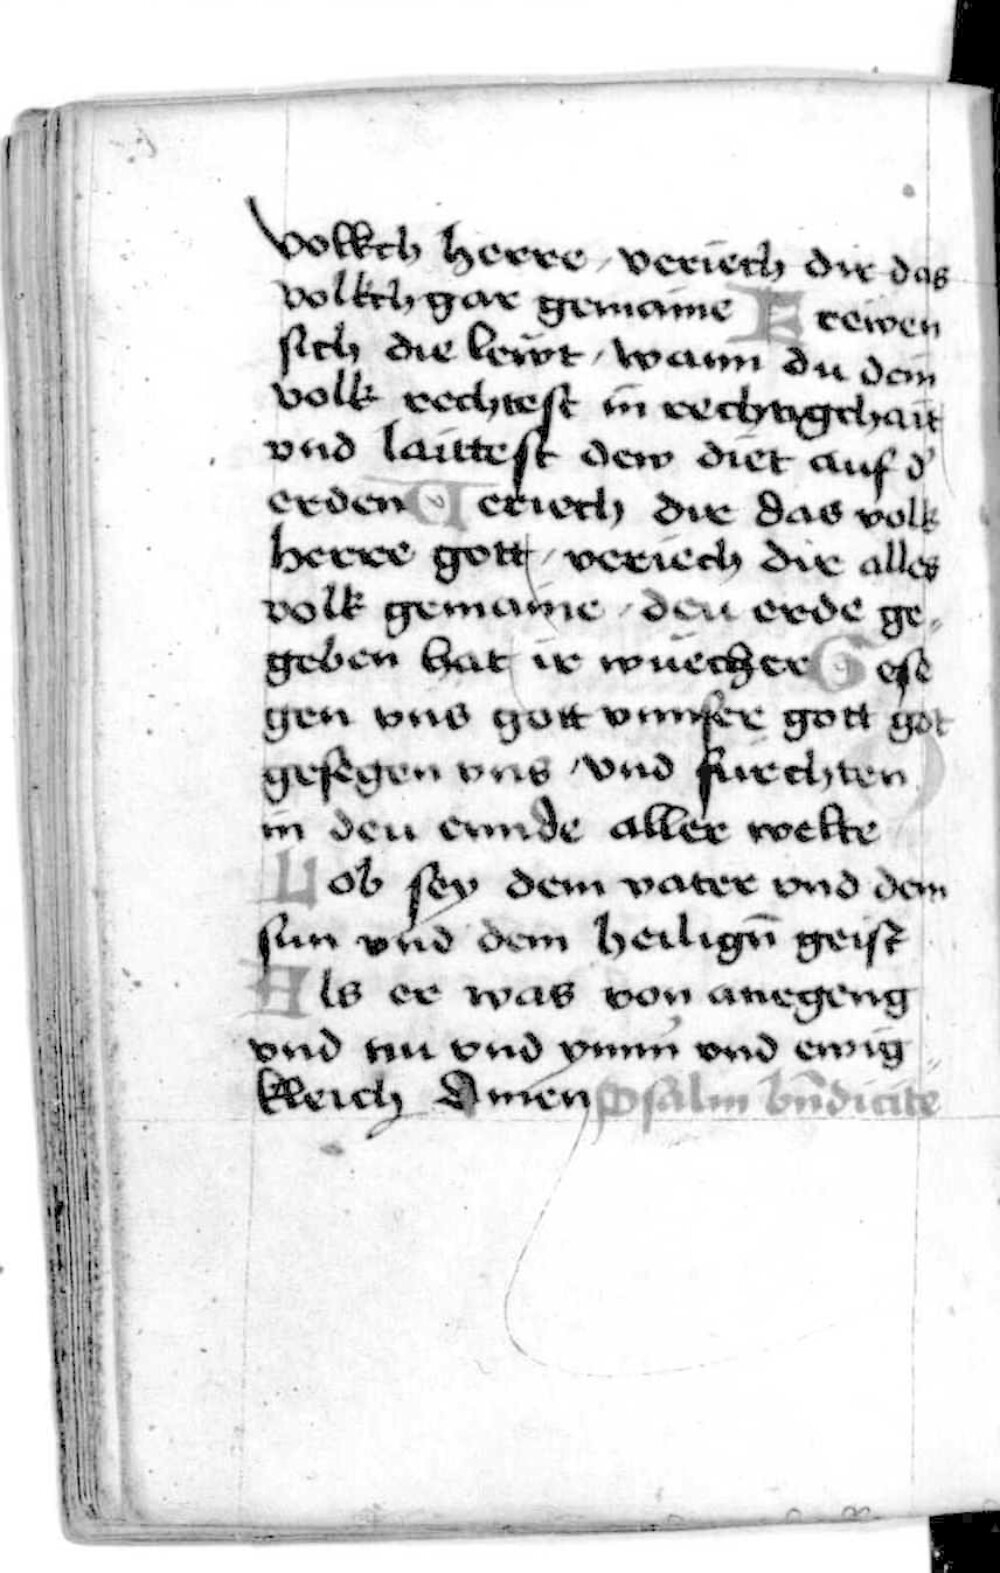 volkch herre / veriech dir das
volkch gar gemaine Frewen
sich die lewt / wann du dein
volk rechtest in rechtigchait
vnd laittest dew diet auf d'
erden Veriech dir das volk
herre gott / veriech dir alles
volk gemaine / deu erde ge„
geben hat ir wuecher Gese
gen vns gott vnnser gott got
gesegen vns / vnd furchten
in deu ennde aller welte
Lob sey dem vater vnd dem
sun vnd dem heiligñ geist
Als er was von anegeng
vnd nu vnd ymm̃ vnd ewig
kleich Amen Psalm bñdicite